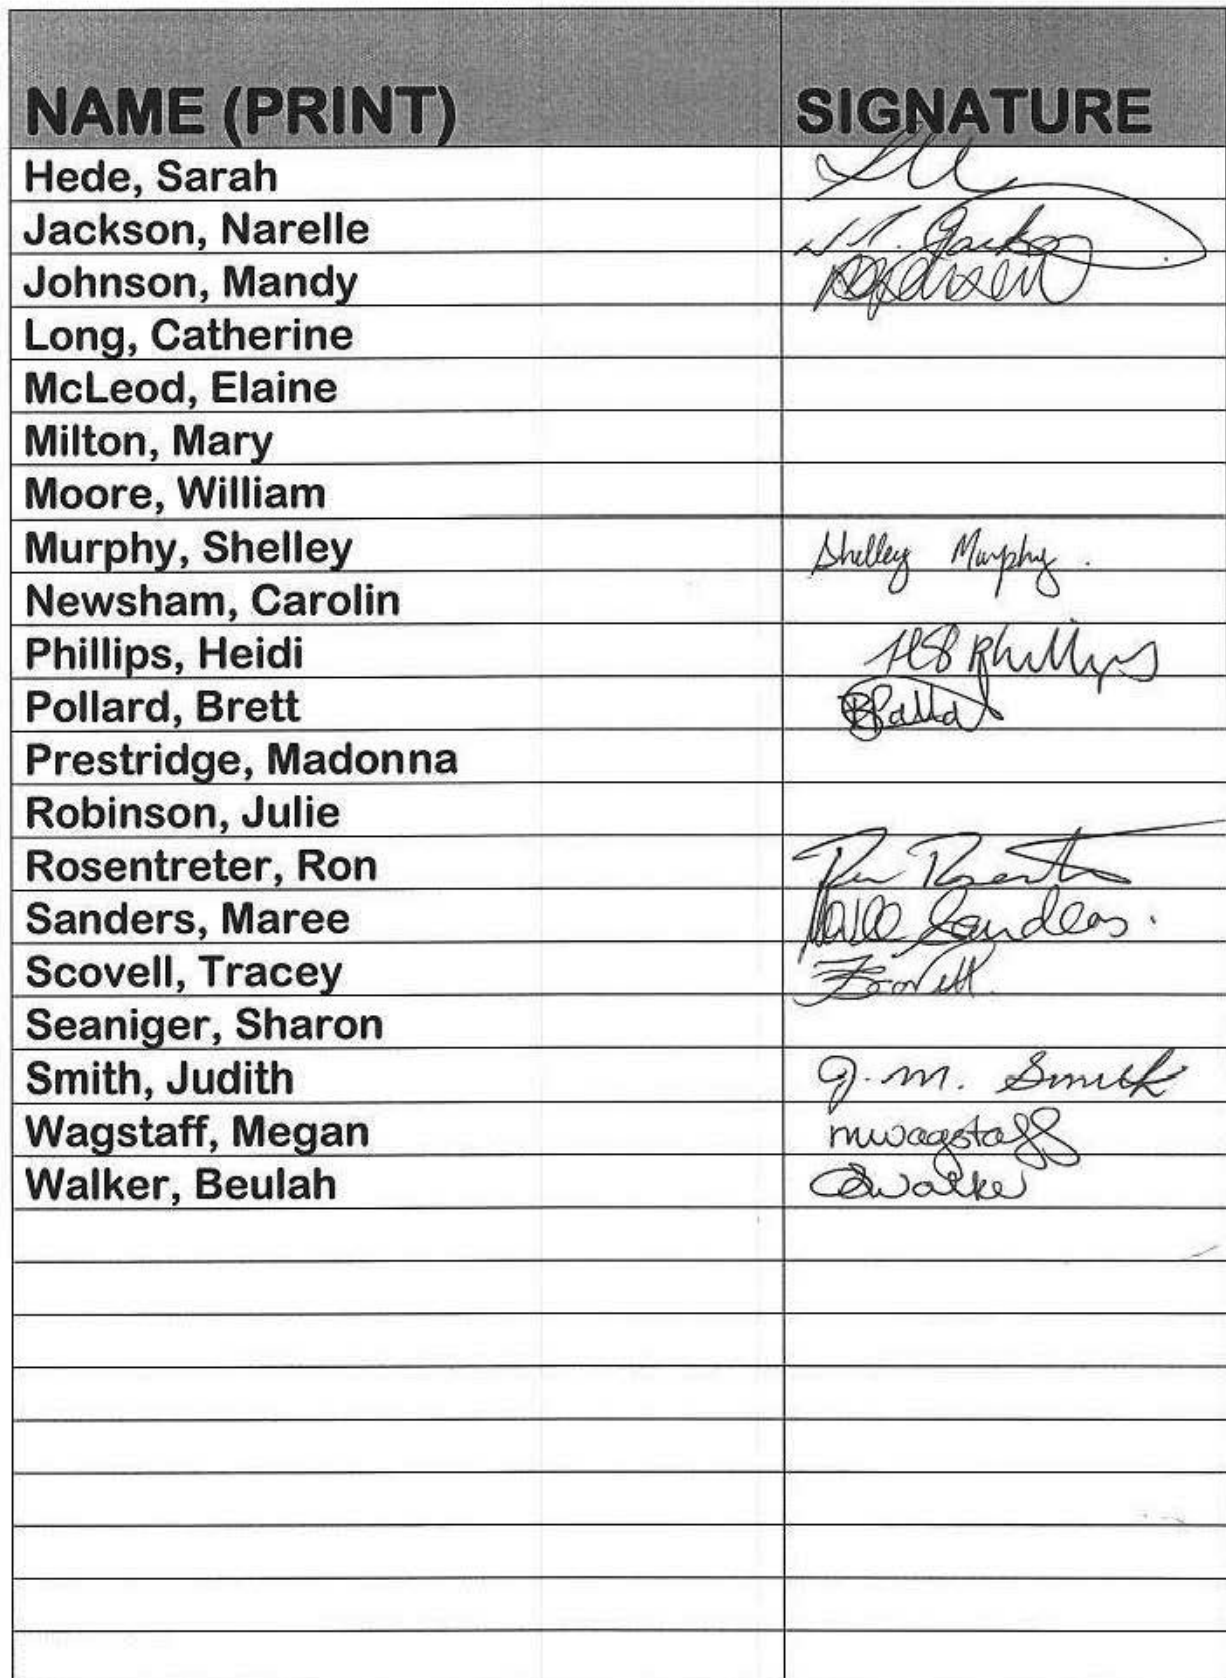 NAME (PRINT) SIGNATURE
Hede, Sarah
Jackson, Narelle
Johnson, Mandy
Long, Catherine
McLeod, Elaine
Milton, Mary
Moore, William
Murphy, Shelley Shelley Murphy.
Newsham, Carolin
Phillips, Heidi HB Phillips
Pollard, Brett
Prestridge, Madonna
Robinson, Julie
Rosentreter, Ron
Sanders, Maree Maree Sanders.
Scovell, Tracey
Seaniger, Sharon
Smith, Judith J. M. Smith
Wagstaff, Megan mwagstaff
Walker, Beulah BWalker